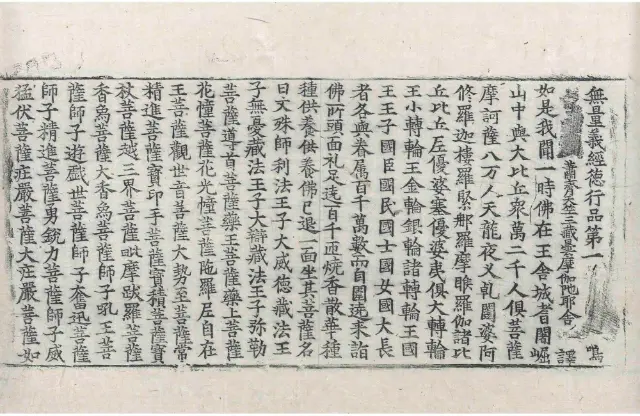 無量義經德行品第一
鳴
蕭齊天竺三藏曇摩伽陁耶舍 譯
如是我聞一時佛在王舍城耆闍崛
山中與大比丘衆萬二千人俱菩薩
摩訶薩八万人天龍夜叉乹闥婆阿
修羅迦樓羅緊那羅摩睺羅伽諸比
丘比丘尼優婆塞優婆夷俱大轉輪
王小轉輪王金輪銀輪諸轉輪王國
王王子國臣國民國士國女國大長
者各與眷属百千萬數而自圍遶來詣
佛所頭面礼足遶百千匝燒香散華種
種供養供養佛已退一面坐其菩薩名
曰文殊師利法王子大威德藏法王
子無憂藏法王子大辯藏法王子弥勒
菩薩導首菩薩藥王菩薩藥上菩薩
花幢菩薩花光幢菩薩陁羅尼自在
王菩薩觀世音菩薩大勢至菩薩常
精進菩薩寶印手菩薩寶積菩薩寶
杖菩薩越三界菩薩毗摩跋羅菩薩
香象菩薩大香象菩薩師子吼王菩
薩師子遊戲世菩薩師子奮迅菩薩
師子精進菩薩勇銳力菩薩師子威
猛伏菩薩莊嚴菩薩大莊嚴菩薩如